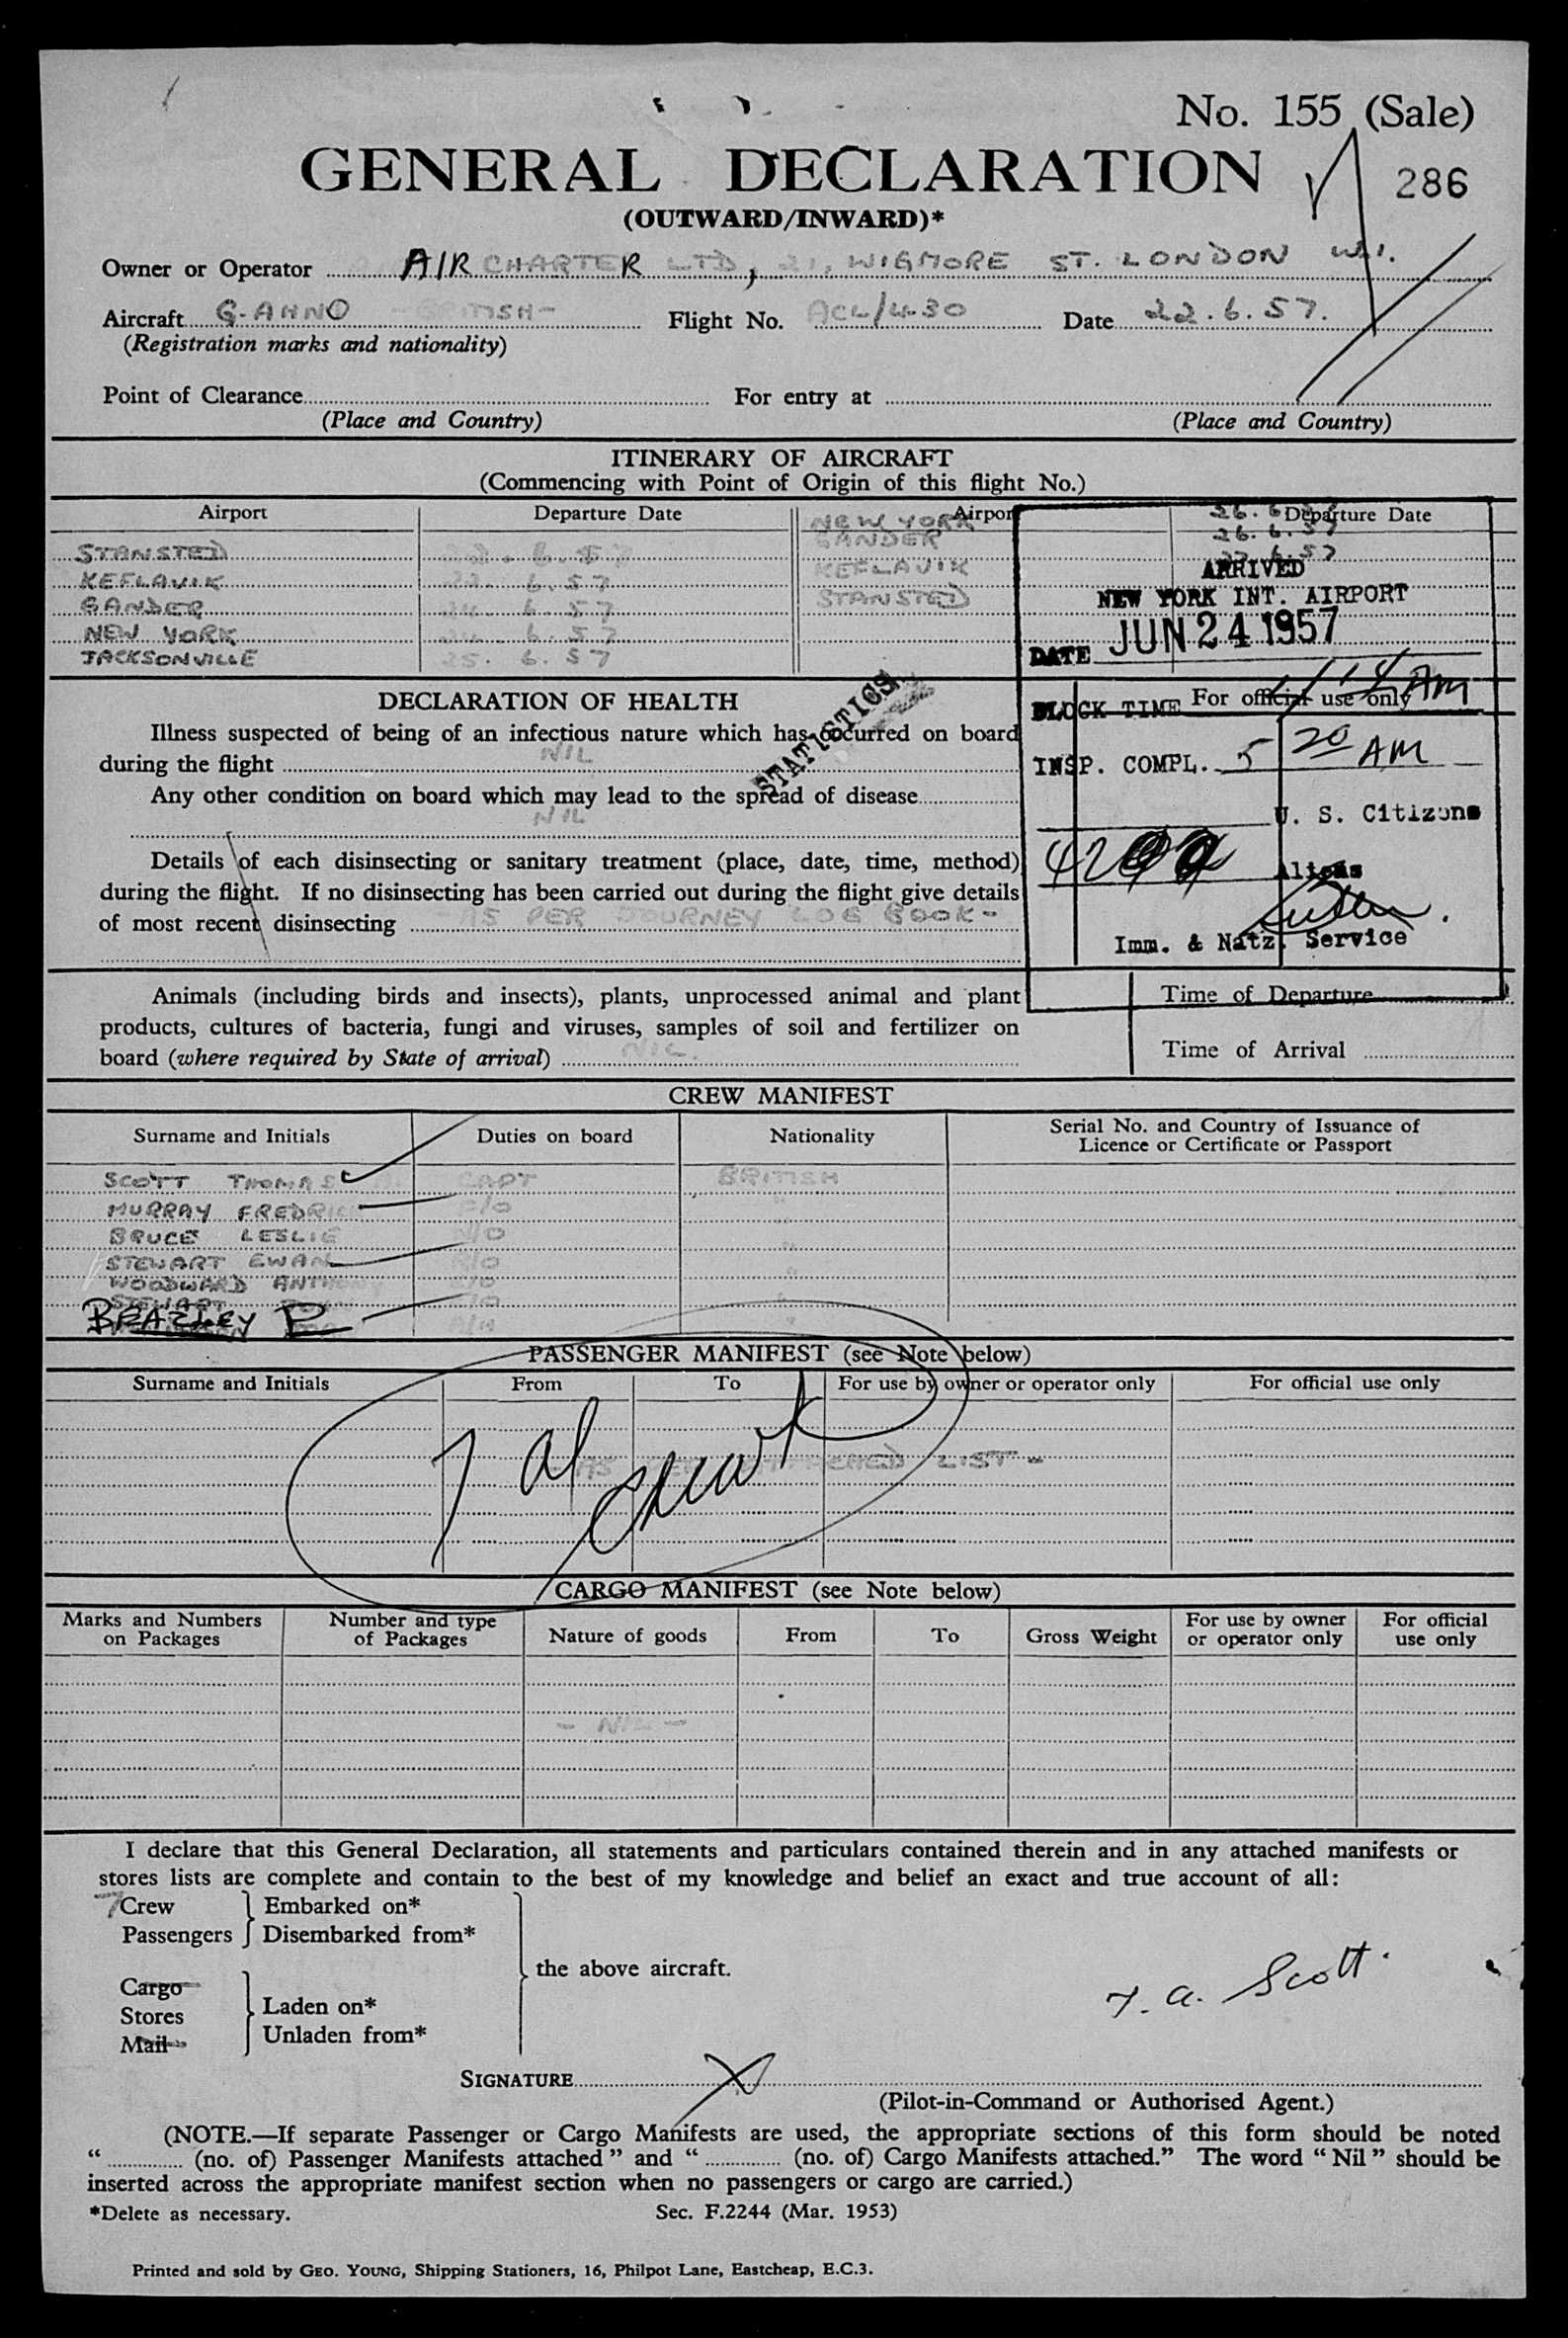 No. 155 (Sale)
GENERAL DECLARATION
286
(OUTWARD/INWARD)*
Owner or Operator AIR CHARTER LTD, 21, WIGMORE ST. LONDON W.1.
Aircraft G-AHNO -BRITISH- Flight No. ACL/430 Date 22.6.57.
(Registration marks and nationality)
Point of Clearance For entry at
(Place and Country) (Place and Country)
ITINERARY OF AIRCRAFT
(Commencing with Point of Origin of this flight No.)
Airport Departure Date Airport Departure Date
NEW YORK 26. 6. 57
GANDER 26. 6. 57
STANSTED 6. 57 KEFLAVIK 27. 6. 57
KEFLAVIK 6. 57 STANSTED
GANDER 6. 57
NEW YORK 6. 57
JACKSONVILLE 25. 6. 57
ARRIVED
NEW YORK INT. AIRPORT
DATE JUN 24 1957
BLOCK TIME AM
For official use only
INSP. COMPL. 5 20 AM
U. S. Citizens
Aliens
Imm. & Natz. Service
STATISTICS
DECLARATION OF HEALTH
Illness suspected of being of an infectious nature which has occurred on board
during the flight NIL
Any other condition on board which may lead to the spread of disease
NIL
Details of each disinsecting or sanitary treatment (place, date, time, method)
during the flight. If no disinsecting has been carried out during the flight give details
of most recent disinsecting AS PER JOURNEY LOG BOOK-
Animals (including birds and insects), plants, unprocessed animal and plant
products, cultures of bacteria, fungi and viruses, samples of soil and fertilizer on
board (where required by State of arrival) NIL.
Time of Departure
Time of Arrival
CREW MANIFEST
Surname and Initials Duties on board Nationality Serial No. and Country of Issuance of
Licence or Certificate or Passport
SCOTT THOMAS CAPT BRITISH
MURRAY FREDRIC F/O "
BRUCE LESLIE "
STEWART EWAN R/O "
WOODWARD ANTHONY "
STEWART "
BRAZLEY P "
PASSENGER MANIFEST (see Note below)
Surname and Initials From To For use by owner or operator only For official use only
AS PER ATTACHED LIST -
7 al crew
CARGO MANIFEST (see Note below)
Marks and Numbers on Packages Number and type of Packages Nature of goods From To Gross Weight For use by owner or operator only For official use only
- NIL -
I declare that this General Declaration, all statements and particulars contained therein and in any attached manifests or
stores lists are complete and contain to the best of my knowledge and belief an exact and true account of all:
7 Crew Embarked on*
Passengers Disembarked from*
the above aircraft.
Cargo
Stores Laden on*
Mail Unladen from*
T. A. Scott.
SIGNATURE X
(Pilot-in-Command or Authorised Agent.)
(NOTE.—If separate Passenger or Cargo Manifests are used, the appropriate sections of this form should be noted
“ ............ (no. of) Passenger Manifests attached” and “ ............ (no. of) Cargo Manifests attached.” The word “Nil” should be
inserted across the appropriate manifest section when no passengers or cargo are carried.)
*Delete as necessary. Sec. F.2244 (Mar. 1953)
Printed and sold by GEO. YOUNG, Shipping Stationers, 16, Philpot Lane, Eastcheap, E.C.3.